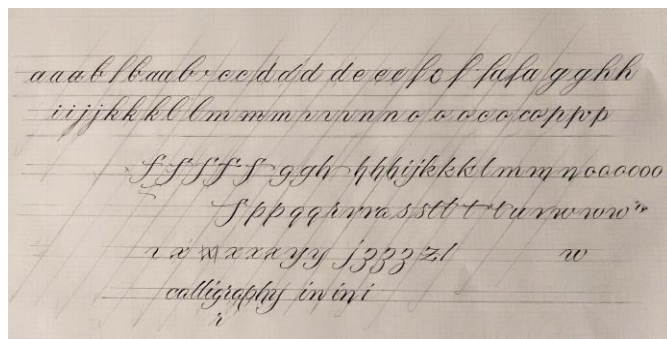 a a a b l b a a b r c c d d d d e c e f c f fafa g g h h
i i j j k k k l l m m m n v v n n n o o o c o c o p p v p
f f f f f g g h h h h i j k k k l m m n o o o o o o
f p p q q r v r a s s t t t t t u r w w w w
r x w x x x x y y j z z z z l w
calligraphy in in i